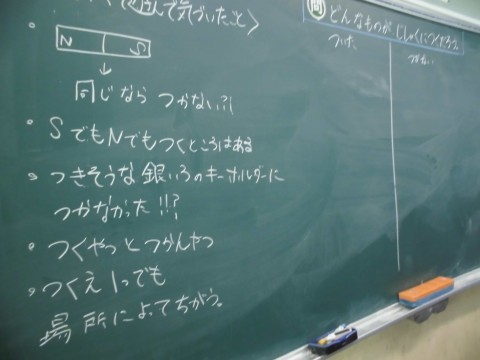 で遊んで気づいたこと〉
N S
↓
同じなら つかない?!
・SでもNでもつくところはある
・つきそうな銀いろのキーホルダーに
つかなかった!!?
・つくやつとつかんやつ
・つくえ1つでも
場所によてちがう。
問 どんなものが じしゃくにつくだろう
ついた
つかない